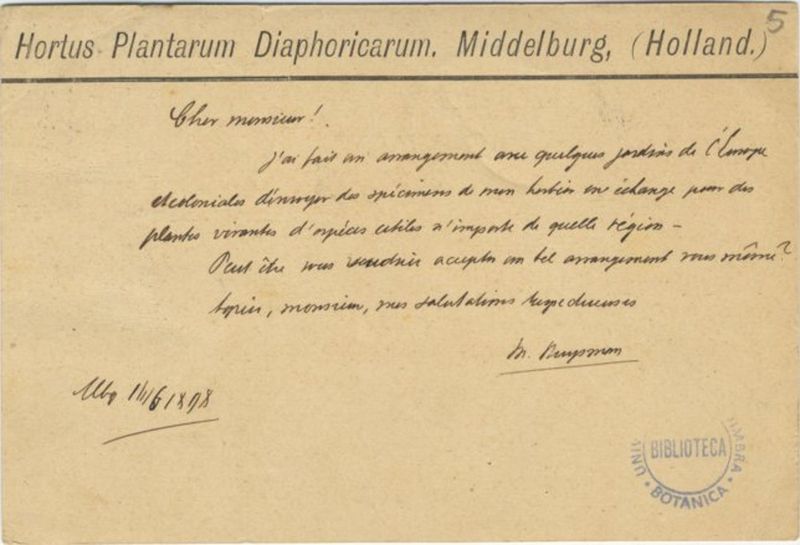 5
Hortus Plantarum Diaphoricarum. Middelburg, (Holland.)
Cher monsieur!
J'ai fait un arrangement avec quelques jardins de l'Europe
et coloniales d'envoyer des spécimens de mon herbier en échange pour des
plantes vivantes d'espèces utiles n'importe de quelle région –
Peut être vous voudriez accepter un tel arrangement vous même?
monsieur, mes salutations respectueuses
M. Buysman
1898
BIBLIOTECA
BOTANICA